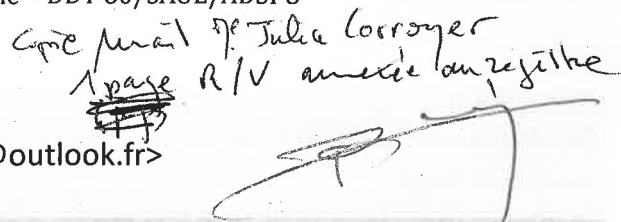 DDT 60/SAUE/ADSPS
Copie Mail Me Julia Corroyer
1 page R/V annexée au registre
outlook.fr>